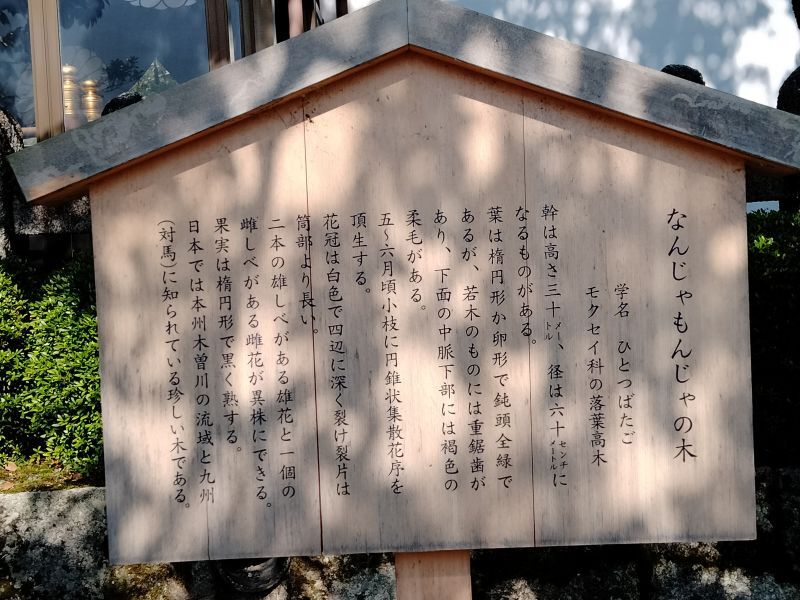 なんじゃもんじゃの木
学名　ひとつばたご
モクセイ科の落葉高木
幹は高さ三十メートル、径は六十センチメートルに
なるものがある。
葉は楕円形か卵形で鈍頭全緑で
あるが、若木のものには重鋸歯が
あり、下面の中脈下部には褐色の
柔毛がある。
五〜六月頃小枝に円錐状集散花序を
頂生する。
花冠は白色で四辺に深く裂け裂片は
筒部より長い。
二本の雄しべがある雄花と一個の
雌しべがある雌花が異株にできる。
果実は楕円形で黒く熟する。
日本では本州木曽川の流域と九州
(対馬)に知られている珍しい木である。